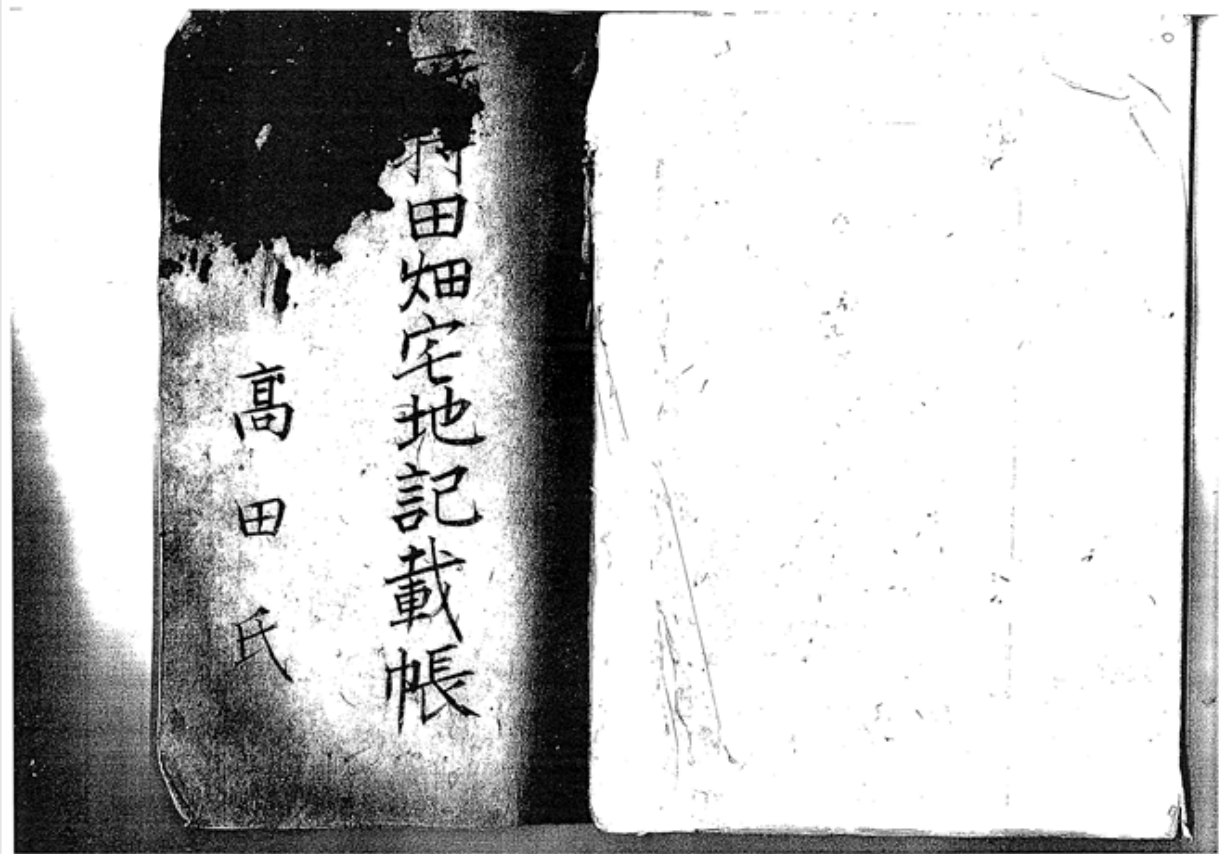 村田畑宅地記載帳
髙田氏